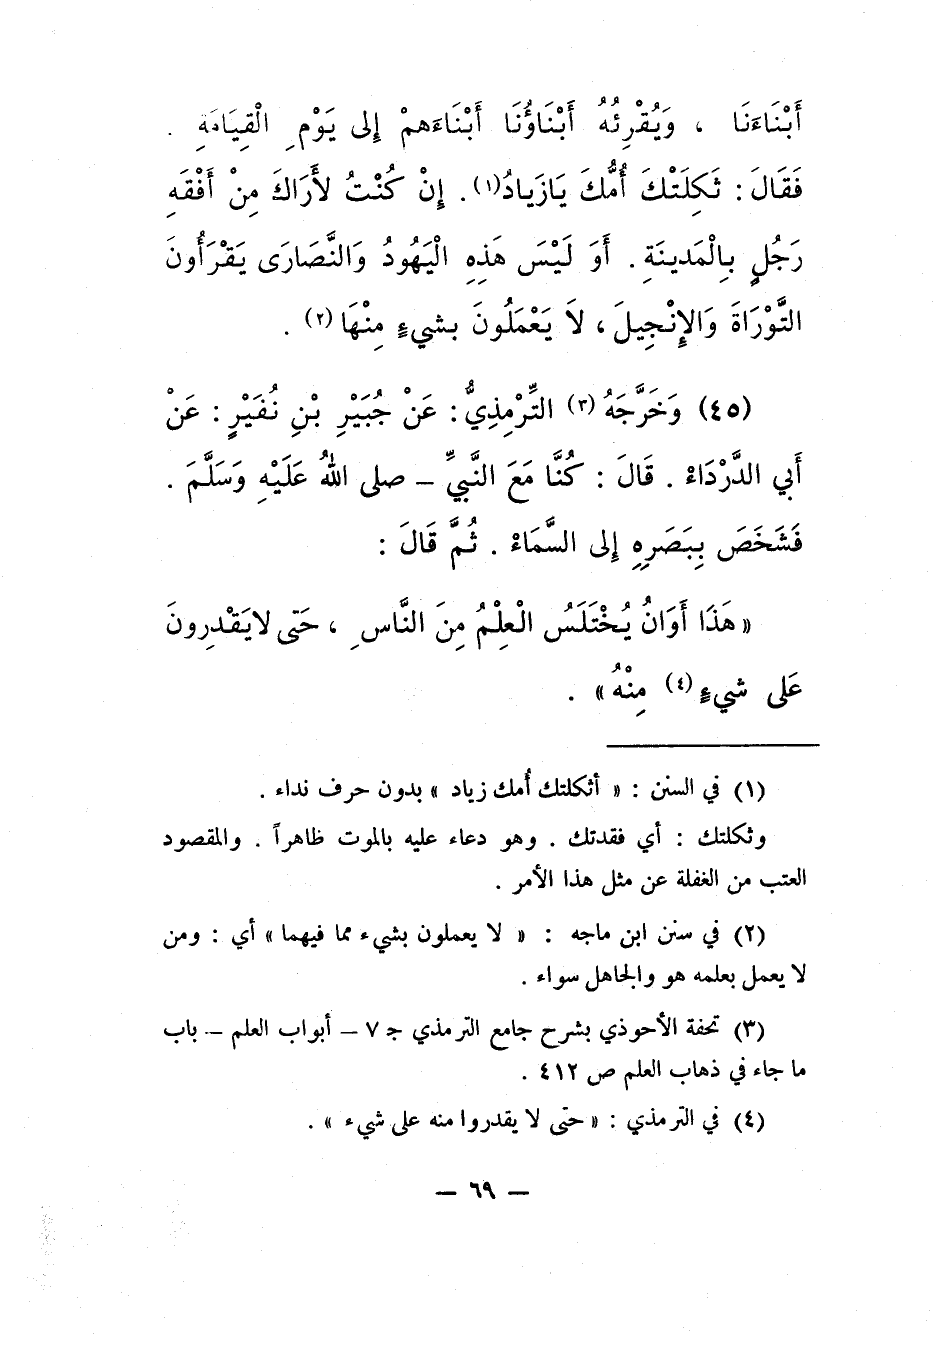 أَبْنَاءَنَا ، وَيُقْرِئُهُ أَبْنَاؤُنَا أَبْنَاءَهمْ إلى يَوْمِ الْقِيَامَةِ .
فَقَالَ : ثَكِلَتْكَ أُمُّكَ يَازَيادُ(١). إِنْ كُنْتُ لأَرَاكَ مِنْ أَفْقَهِ
رَجُلٍ بِالْمَدينَةِ . أَوَ لَيْسَ هَذِهِ الْيَهُودُ وَالنَّصَارَى يَقْرَأُونَ
التَّوْرَاةَ وَالإِنْجِيلَ ، لاَ يَعْمَلُونَ بشيءٍ مِنْهَا (٢) .
(٤٥) وَخَرَّجَهُ (٣) التِّرْمِذِيُّ : عَنْ جُبَيْرِ بْنِ نُفَيْرٍ : عَنْ
أَبي الدَّرْدَاءْ . قَالَ : كُنَّا مَعَ النَّبيِّ – صلى اللهُ عَلَيْهِ وَسَلَّمَ .
فَشَخَصَ بِبَصَرِهِ إلى السَّمَاءْ . ثُمَّ قَالَ :
« هَذَا أَوَانُ يُخْتَلَسُ الْعِلْمُ مِنَ النَّاسِ ، حَتى لايَقْدِرونَ
عَلى شيءٍ (٤) مِنْهُ » .
(١) في السنن : « أثكلتك أُمك زياد » بدون حرف نداء .
وثكلتك : أي فقدتك . وهو دعاء عليه بالموت ظاهراً . والمقصود
العتب من الغفلة عن مثل هذا الأمر .
(٢) في سنن ابن ماجه : « لا يعملون بشيء مما فيهما » أي : ومن
لا يعمل بعلمه هو والجاهل سواء .
(٣) تحفة الأحوذي بشرح جامع الترمذي ج ٧ – أبواب العلم – باب
ما جاء في ذهاب العلم ص ٤١٢ .
(٤) في الترمذي : « حتى لا يقدروا منه على شيء » .
– ٦٩ –